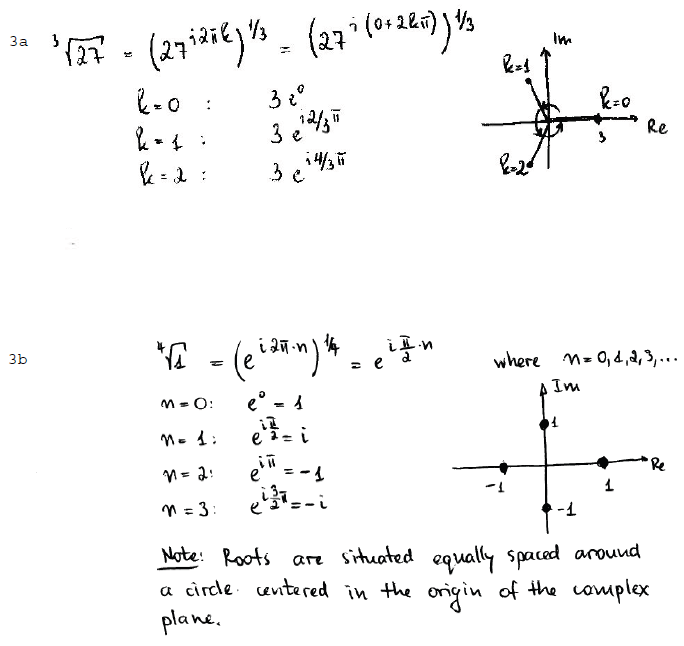 3a ³√27 = (27^{i2πk})^{1/3} = (27^{i(0+2kπ)})^{1/3}
Im
k=1
k=0 : 3e⁰
k=0
k=1 : 3e^{i2/3π}
3 Re
k=2 : 3e^{i4/3π}
k=2
3b ⁴√1 = (e^{i2π·n})^{1/4} = e^{i π/2 ·n} where n=0,1,2,3,...
Im
n=0: e⁰ = 1
1
n=1: e^{iπ/2} = i
Re
n=2: e^{iπ} = -1
-1 1
n=3: e^{i3/2π} = -i
-1
Note: Roots are situated equally spaced around
a circle centered in the origin of the complex
plane.